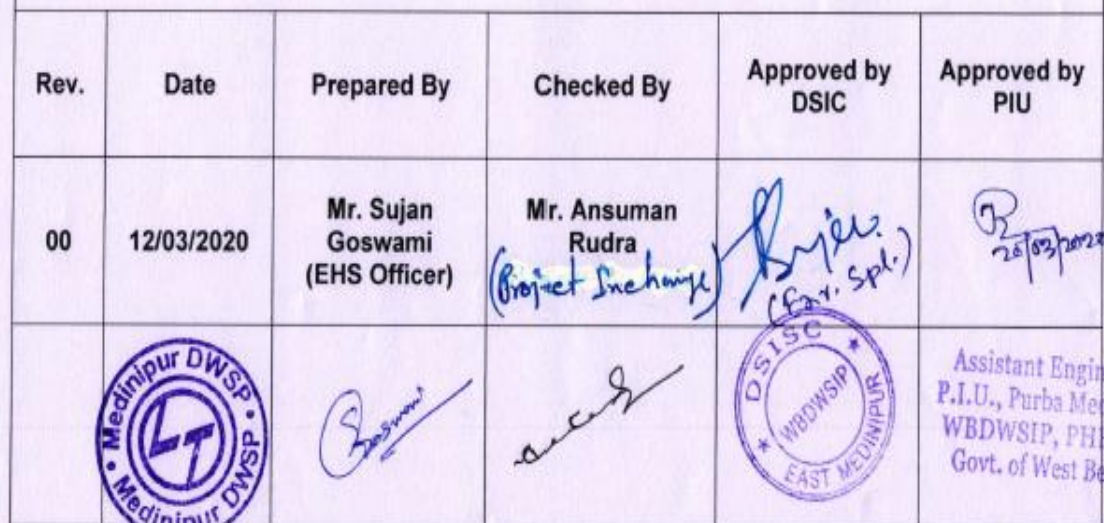 Rev.
Date
Prepared By
Checked By
Approved by
DSIC
Approved by
PIU
00
12/03/2020
Mr. Sujan
Goswami
(EHS Officer)
Mr. Ansuman
Rudra
(Project Incharge)
(Env. Spl.)
20/03/2020
Medinipur DWSP
LT
Medinipur DWSP
DSISC
WBDWSIP
EAST MEDINIPUR
Assistant Engin
P.I.U., Purba Me
WBDWSIP, PH
Govt. of West Be